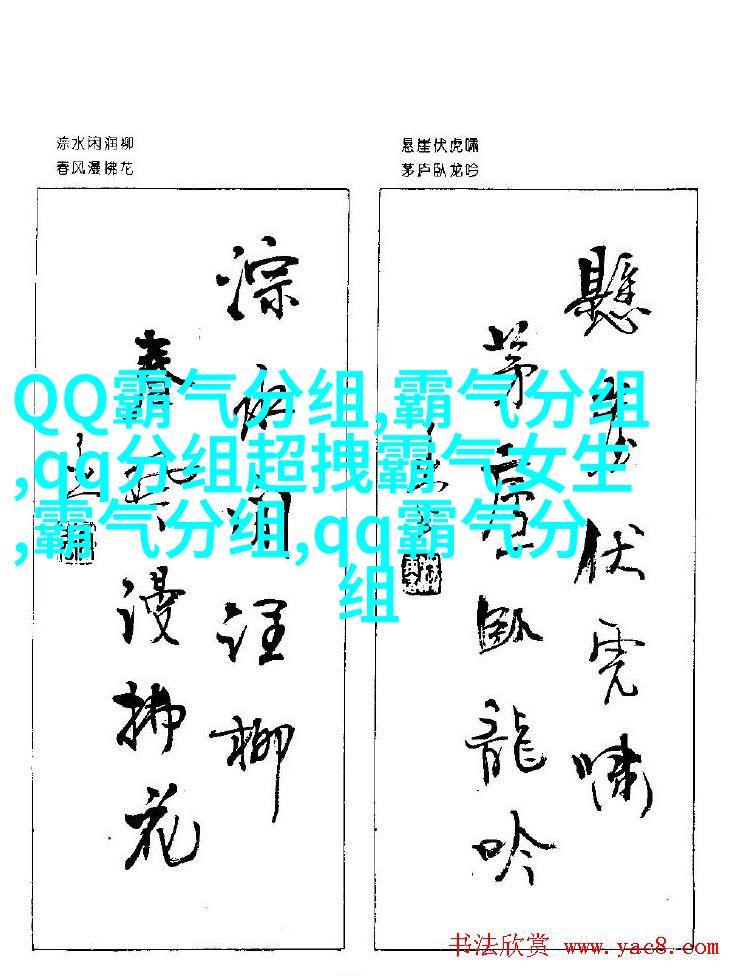 淙水闲润柳
春风漫拂花
悬崖伏虎啸
茅庐卧龙吟
QQ霸气分组,霸气分组
,qq分组超拽霸气女生
,霸气分组,qq霸气分
组
懸崖伏虎嘯
茅廬臥龍吟
淙水闲润柳
春风漫拂花
书法欣赏 www.yac8.com